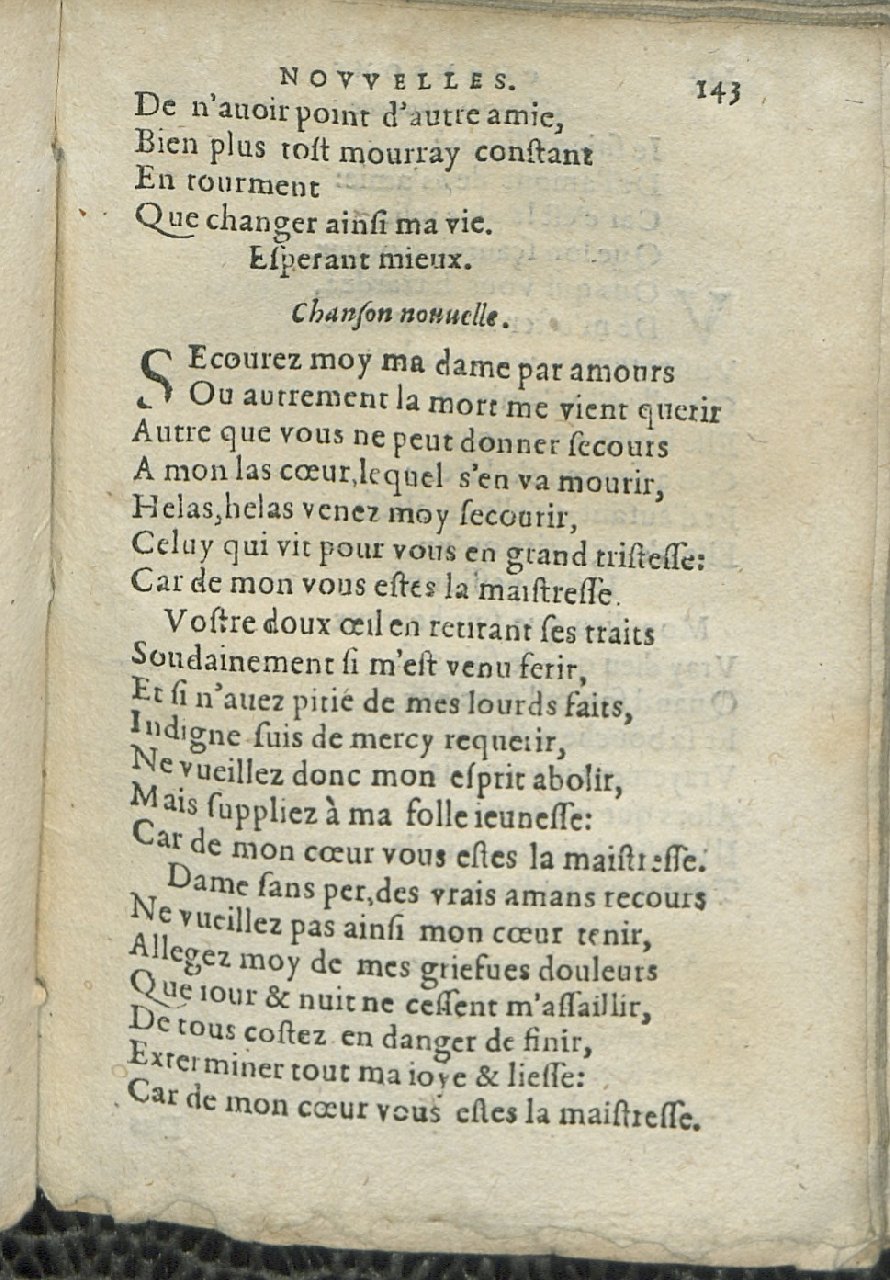 NOVVELLES. 143
De n'auoir point d'autre amie,
Bien plus tost mourray constant
En tourment
Que changer ainsi ma vie.
Esperant mieux.
Chanson nouuelle.
SEcourez moy ma dame par amours
Ou autrement la mort me vient querir
Autre que vous ne peut donner secours
A mon las cœur, lequel s'en va mourir,
Helas, helas venez moy secourir,
Celuy qui vit pour vous en grand tristesse:
Car de mon vous estes la maistresse.
Vostre doux œil en retirant ses traits
Soudainement si m'est venu ferir,
Et si n'auez pitié de mes lourds faits,
Indigne suis de mercy requerir,
Ne vueillez donc mon esprit abolir,
Mais suppliez à ma folle ieunesse:
Car de mon cœur vous estes la maistresse.
Dame sans per, des vrais amans recours
Ne vueillez pas ainsi mon cœur tenir,
Allegez moy de mes griefues douleurs
Que iour & nuit ne cessent m'assaillir,
De tous costez en danger de finir,
Exterminer tout ma ioye & liesse:
Car de mon cœur vous estes la maistresse.